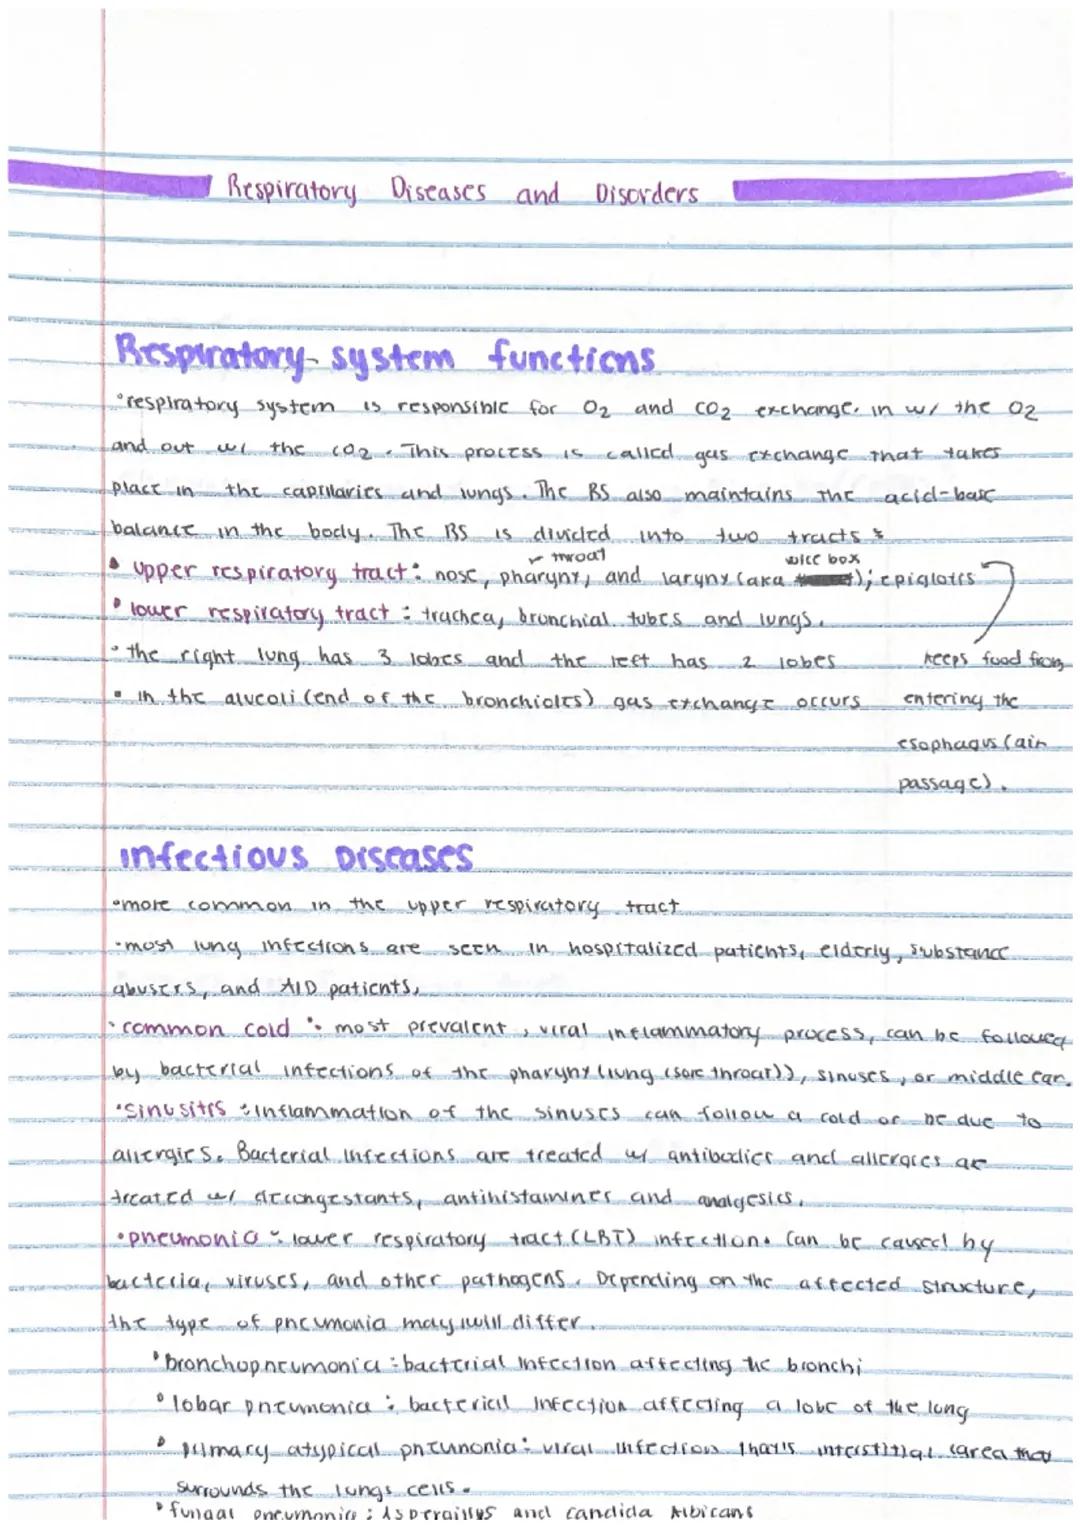 Respiratory Diseases and Disorders
Respiratory system functions
•respiratory system is responsible for O2 and CO2 exchange. in w/ the O2
and out w/ the CO2. This process is called gas exchange that takes
place in the capillaries and lungs. The RS also maintains the acid-base
balance in the body. The RS is divided into two tracts:
throat
voice box
• Upper respiratory tract: nose, pharynx, and larynx (aka ); epiglotis
• lower respiratory tract: trachea, bronchial tubes and lungs.
• the right lung has 3 lobes and the left has 2 lobes
keeps food from
• in the alveoli (end of the bronchioles) gas exchange occurs
entering the
esophagus (air
passage).
infectious Diseases
•more common in the upper respiratory tract
•most lung infections are seen in hospitalized patients, elderly, substance
abusers, and AID patients,
•common cold: most prevalent, viral inflammatory process, can be followed
by bacterial infections of the pharynx (lung (sore throat)), sinuses, or middle ear.
•Sinusitis: inflammation of the sinuses can follow a cold or be due to
allergies. Bacterial infections are treated w/ antibodies and allergies are
treated w/ decongestants, antihistamines and analgesics.
•pneumonia: lower respiratory tract (LRT) infection. Can be caused by
bacteria, viruses, and other pathogens. Depending on the affected structure,
the type of pneumonia may/will differ.
•bronchopneumonia: bacterial infection affecting the bronchi
•lobar pneumonia: bacterial infection affecting a lobe of the lung
• primary atypical pneunonia: viral infection that's interstitial (area that
surrounds the lungs cells.
•fungal pneumonia: Aspergillys and candida Albicans